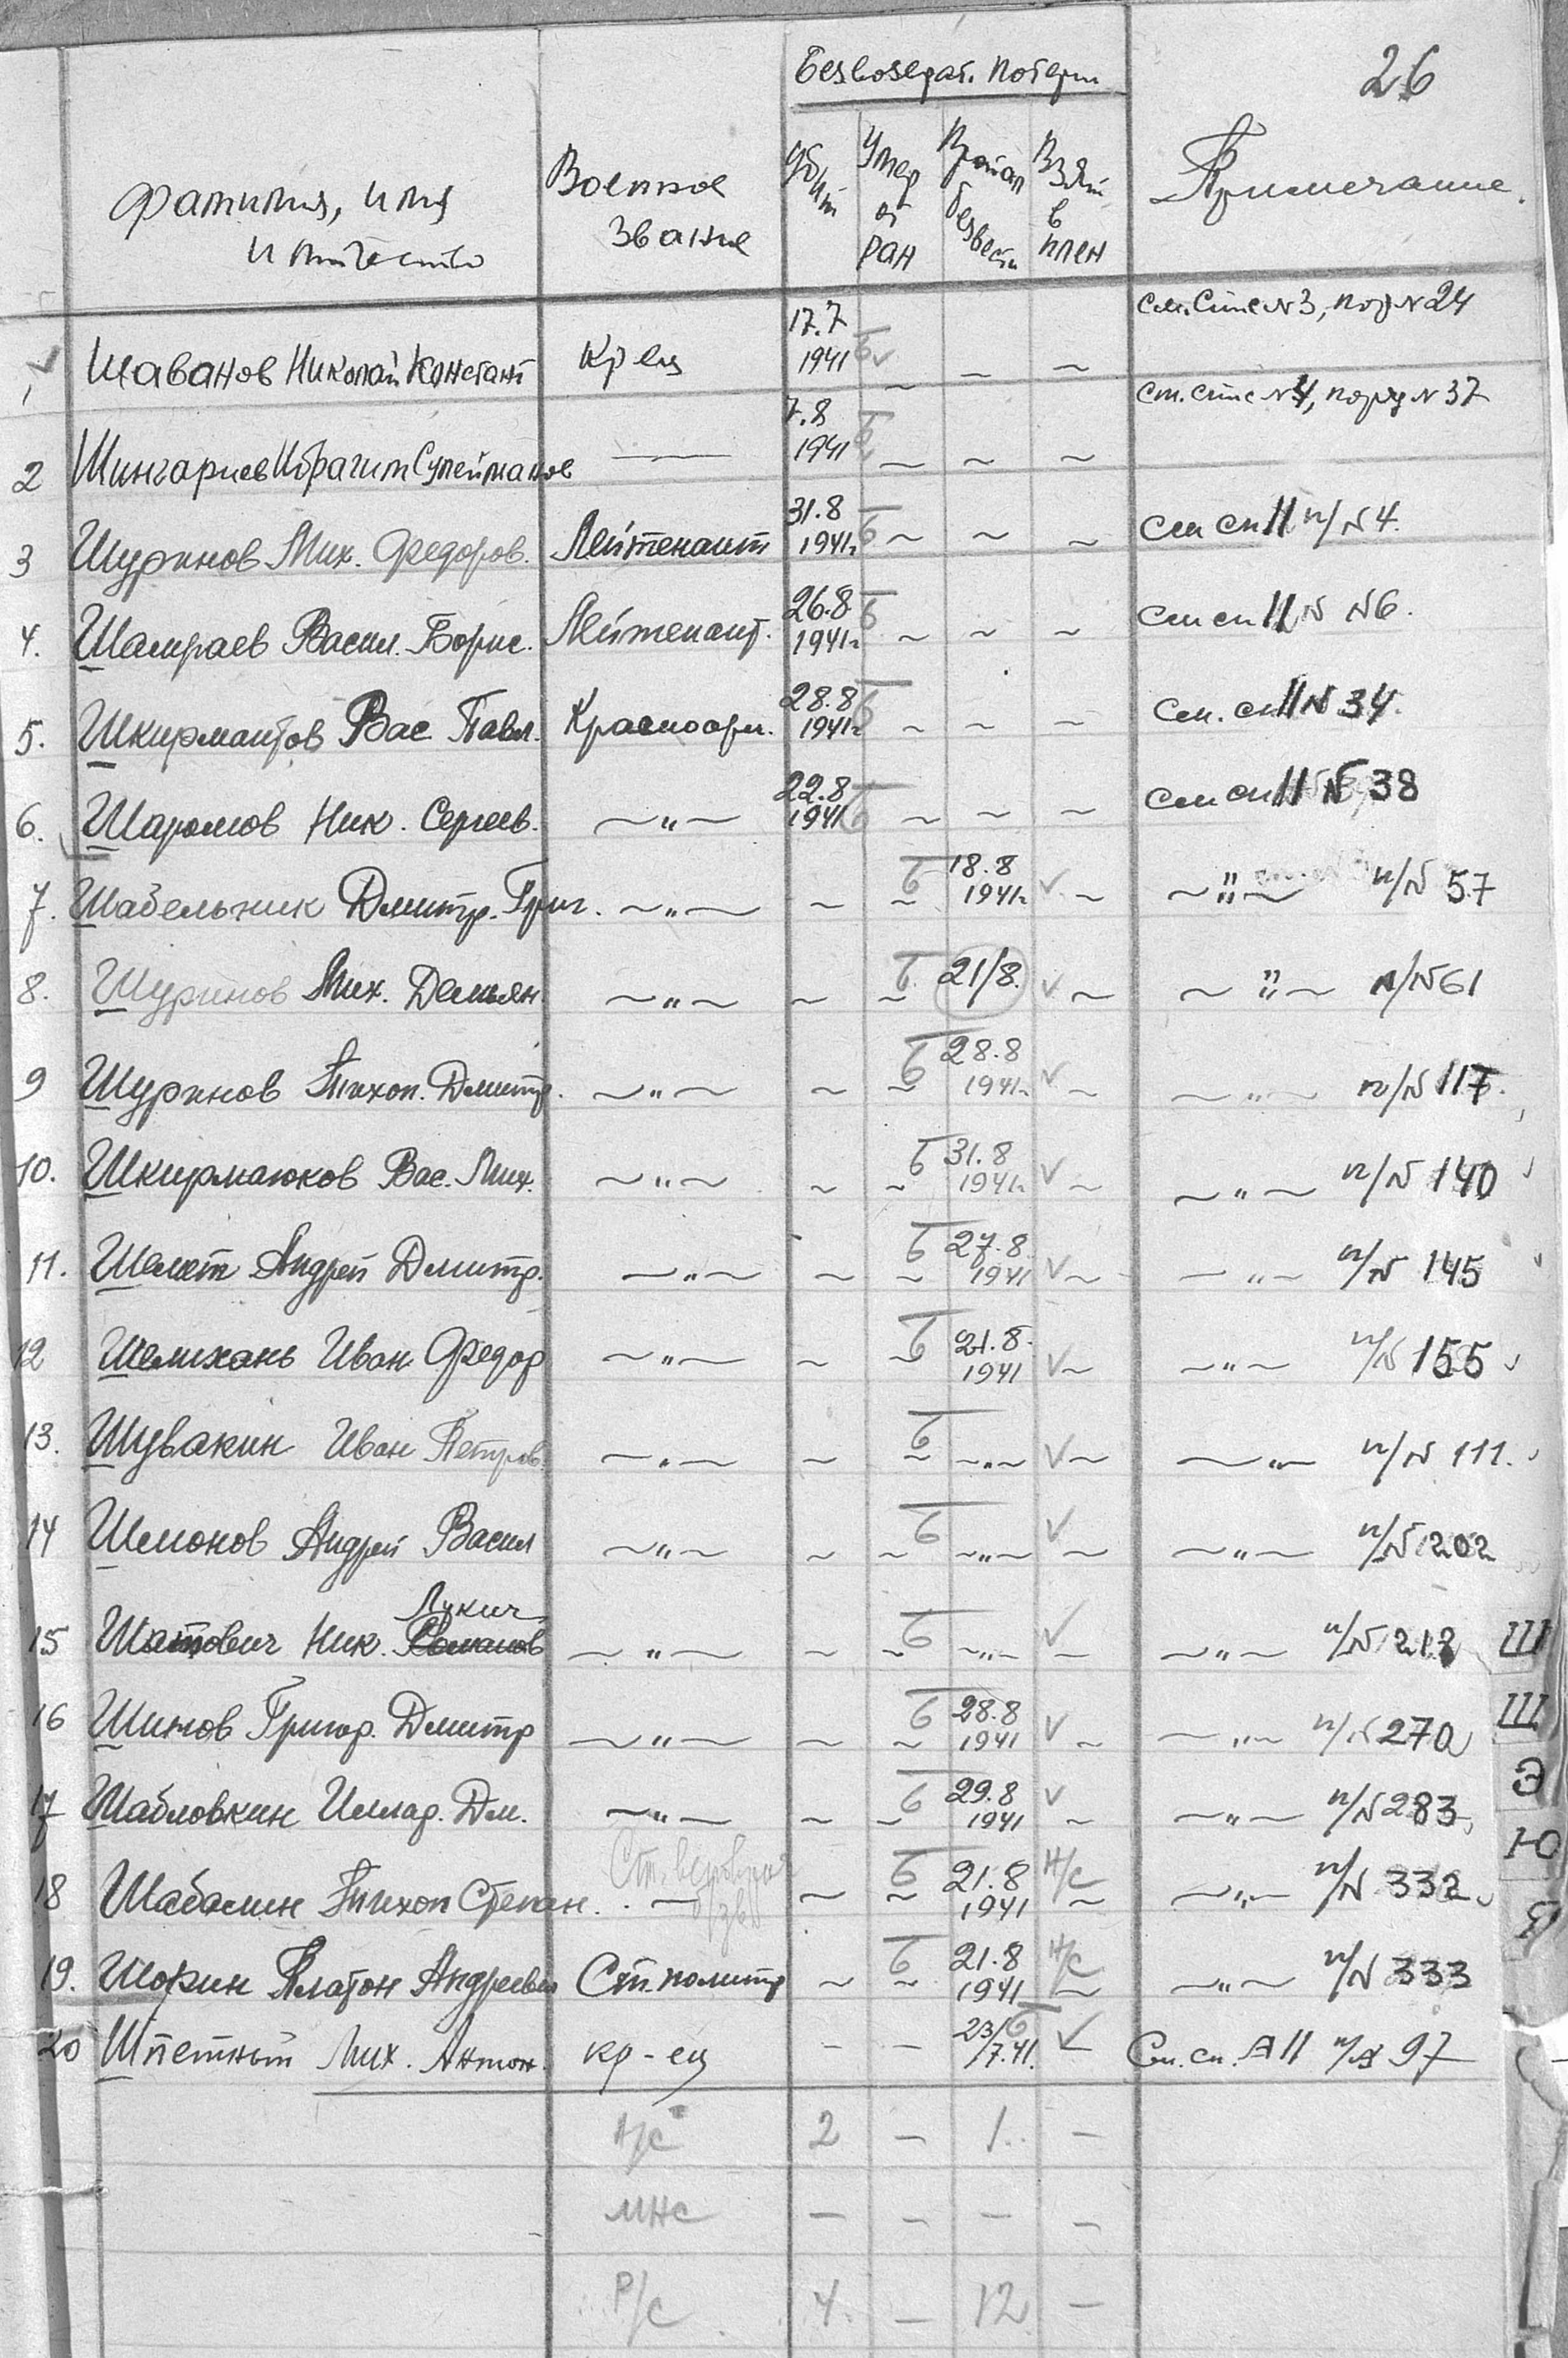 26
Безвозврат. потери
Фамилия, имя и отчество
Военное звание
Убит
Умер от ран
Пропал безвести
Взят в плен
Примечание.
1 Шаванов Николай Констант Кр ец 17.7 1941 ~ – ~ см. спис № 3, пор № 24
2 Шингариев Ибрагим Сулейманов — 7.8 1941 ~ ~ ~ см. спис № 4, поряд № 37
3 Шуринов Мих. Федоров. Лейтенант 31.8 1941г ~ ~ ~ См сп II п/№ 4.
4. Шамраев Васил. Борис. Лейтенант. 26.8 1941г ~ ~ ~ см сп II № №6.
5. Шкирмантов Вас Павл. Красноарм. 28.8 1941г ~ ~ ~ См. сп II № 34.
6. Шаромов Ник. Сергеев. ~"~ 22.8 1941 ~ ~ ~ См сп II № 38
7. Шабельник Дмитр. Григ. ~"~ ~ ~ 18.8 1941г ✓ ~ ~"~ п/№ 57
8. Шуринов Мих. Демьян ~"~ ~ ~ 21/8. ✓ ~ ~"~ п/№ 61
9 Шуринов Тихон. Дмитр. ~"~ ~ ~ 28.8 1941г ✓ ~ ~"~ п/№ 117.
10. Шкирмаюков Вас. Мих. ~"~ ~ ~ 31.8 1941г ✓ ~ ~"~ п/№ 140
11. Шелест Андрей Дмитр. ~"~ ~ ~ 27.8 1941 ✓ ~ ~"~ п/№ 145
12 Шелихань Иван Федор ~"~ ~ ~ 21.8. 1941 ✓ ~ ~"~ п/№ 155
13. Шувакин Иван Петров. ~"~ ~ ~ ~"~ ✓ ~ ~"~ п/№ 111.
14 Шмонов Андрей Васил ~"~ ~ ~ ~"~ ✓ ~ ~"~ п/№ 202
Лукич
15 Шатович Ник. Романов ~"~ ~ ~ ~"~ ✓ – ~"~ п/№ 212 Ш
16 Шинов Григор. Дмитр ~"~ ~ ~ 28.8 1941 ✓ ~ ~"~ п/№ 270 Щ
17 Шабловкин Иллар. Дм. ~"~ ~ ~ 29.8 1941 ✓ ~ ~"~ п/№ 283 Э
Ю
18 Шабалин Тихон Степан. — ~ ~ 21.8 1941 н/с ~ ~"~ п/№ 332 Я
19. Шорин Платон Андреевич Ст. политр ~ ~ 21.8 1941 н/с ~ ~"~ п/№ 333
20 Шпетный Мих. Антон. кр-ец - - 23/7.41. ✓ См. сп. № 11 п/№ 97
н/с 2 – 1. –
мнс – – – –
р/с 4. – 12 –